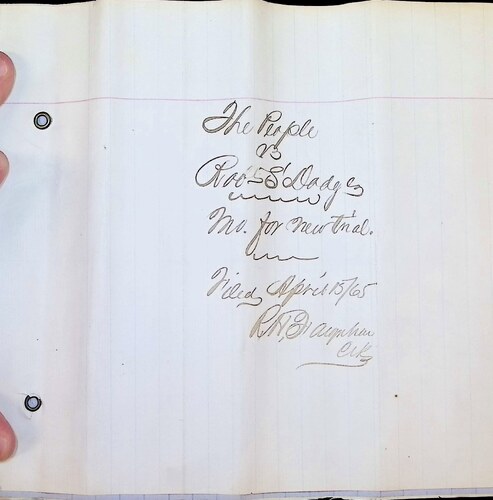 The People
vs
Rob't S Dodge
Mo. for new trial.
Filed April 15/65
R H
Clk